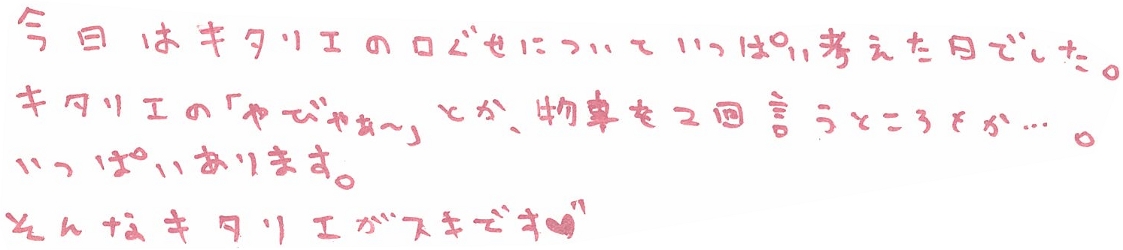 今日はキタリエの口ぐせについていっぱい考えた日でした。
キタリエの「やびゃあ～」とか、物事を2回言うところとか…。
いっぱいあります。
そんなキタリエがスキです♥"